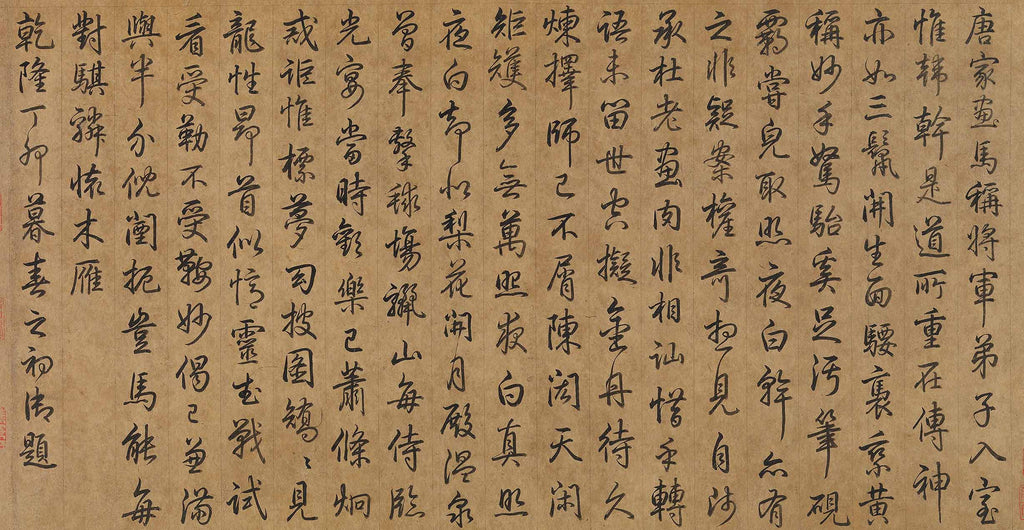 唐家畫馬稱將軍弟子入室
惟韓幹是道所重在傳神
亦如三鬛開生面騕褭乘黃
稱妙手駑駘奚足汚筆硯
霸嘗皃取照夜白幹亦有
之非疑案權奇想見自師
承杜老畫肉非相訕惜乎轉
語未留世空擬金丹待久
煉擇師已不屑陳閎天閑
矩矱多無萬照夜白真照
夜白却似梨花開月殿溫泉
曾奉擊毬場驪山每侍臨
光宴當時歡樂已蕭條炯
戒詎惟標夢披圖矯〻見
龍性昂首似憶靈武戰試
看受勒不受鞍妙偈已兼滿
與半分倪闉扼豈馬能每
對騏驎懷木雁
乾隆丁卯暮春之初御題